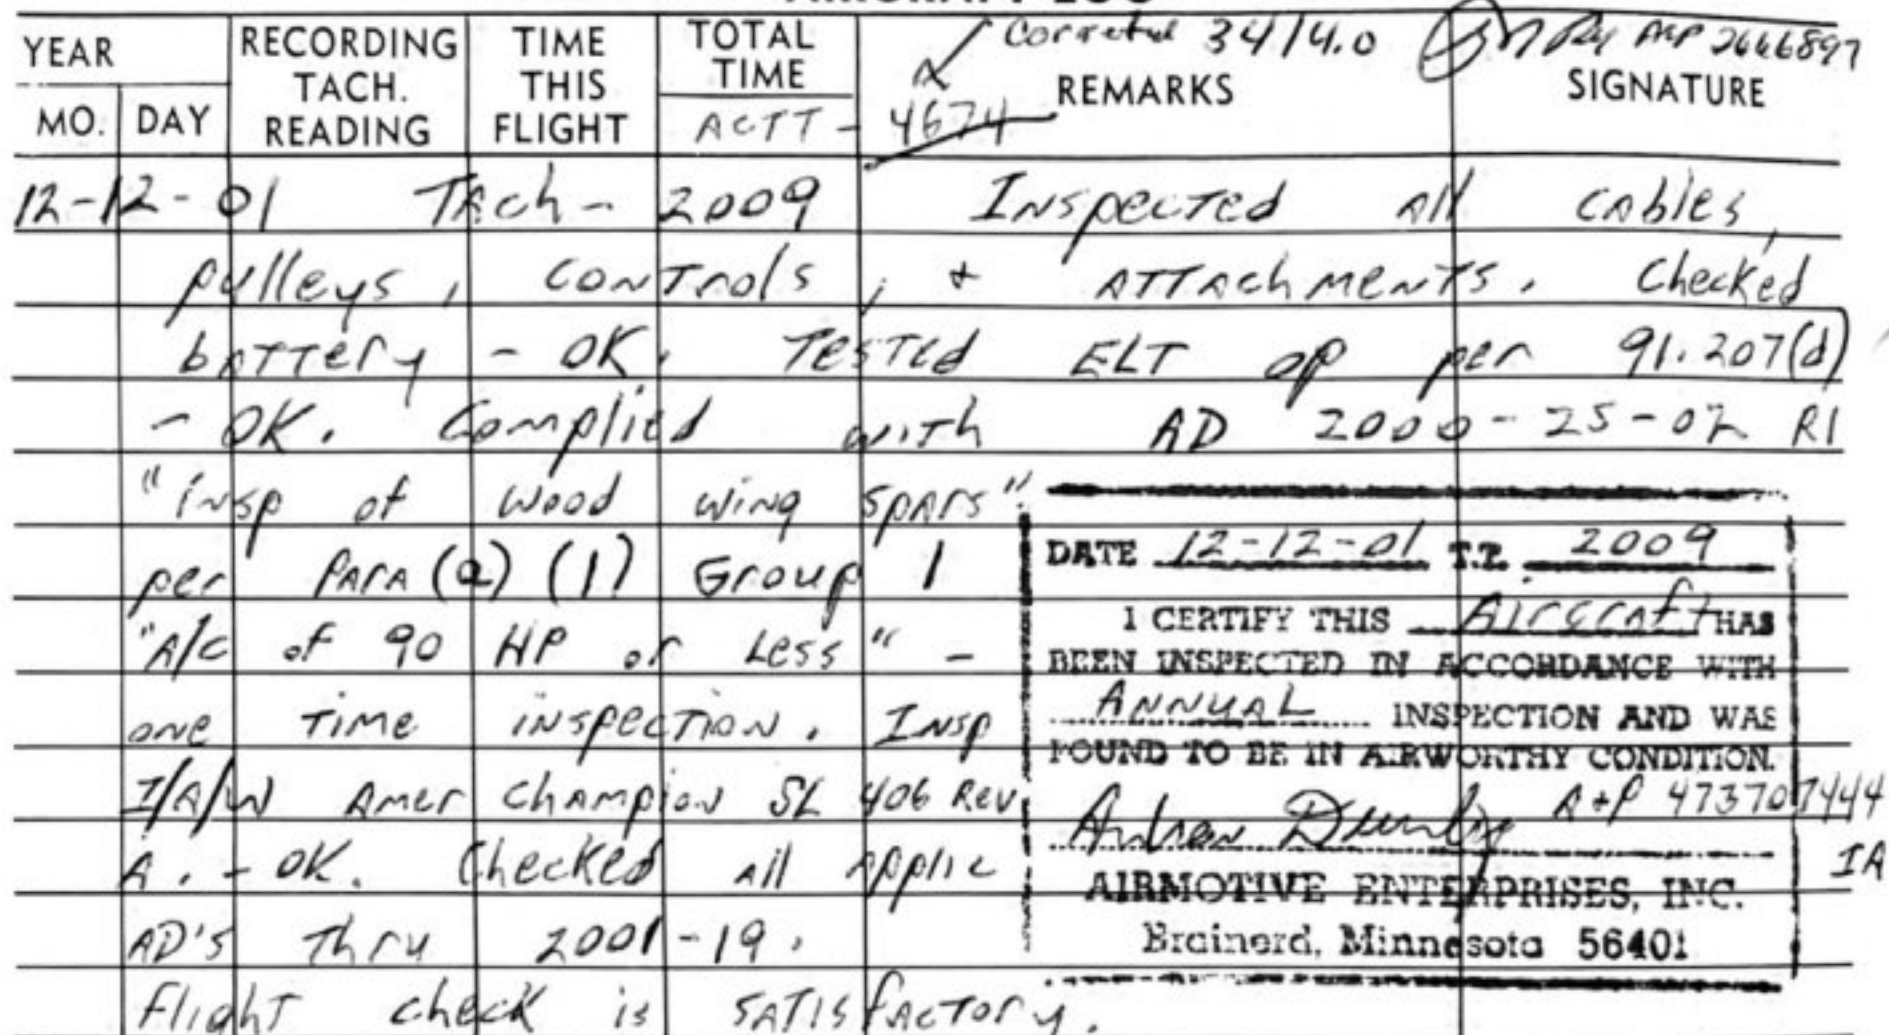 AIRCRAFT LOG
YEAR
MO. DAY
RECORDING TACH. READING
TIME THIS FLIGHT
TOTAL TIME
ACTT - 4674
Corrected 3414.0 A&P 2666897
REMARKS
SIGNATURE
12-12-01 Tach - 2009 Inspected all cables,
pulleys, controls, + attachments. Checked
battery - OK. Tested ELT op per 91.207(d)
- OK. Complied with AD 2000-25-02 R1
"insp of wood wing spars"
per Para (a) (1) Group 1
"A/C of 90 HP or Less" -
one time inspection. Insp
I/A/W Amer Champion SL 406 Rev
A. - OK. Checked all applic
AD's thru 2001-19.
Flight check is satisfactory.
DATE 12-12-01 T.T. 2009
I CERTIFY THIS Aircraft HAS
BEEN INSPECTED IN ACCORDANCE WITH
ANNUAL INSPECTION AND WAS
FOUND TO BE IN AIRWORTHY CONDITION.
A+P 473707444
IA
AIRMOTIVE ENTERPRISES, INC.
Brainerd, Minnesota 56401